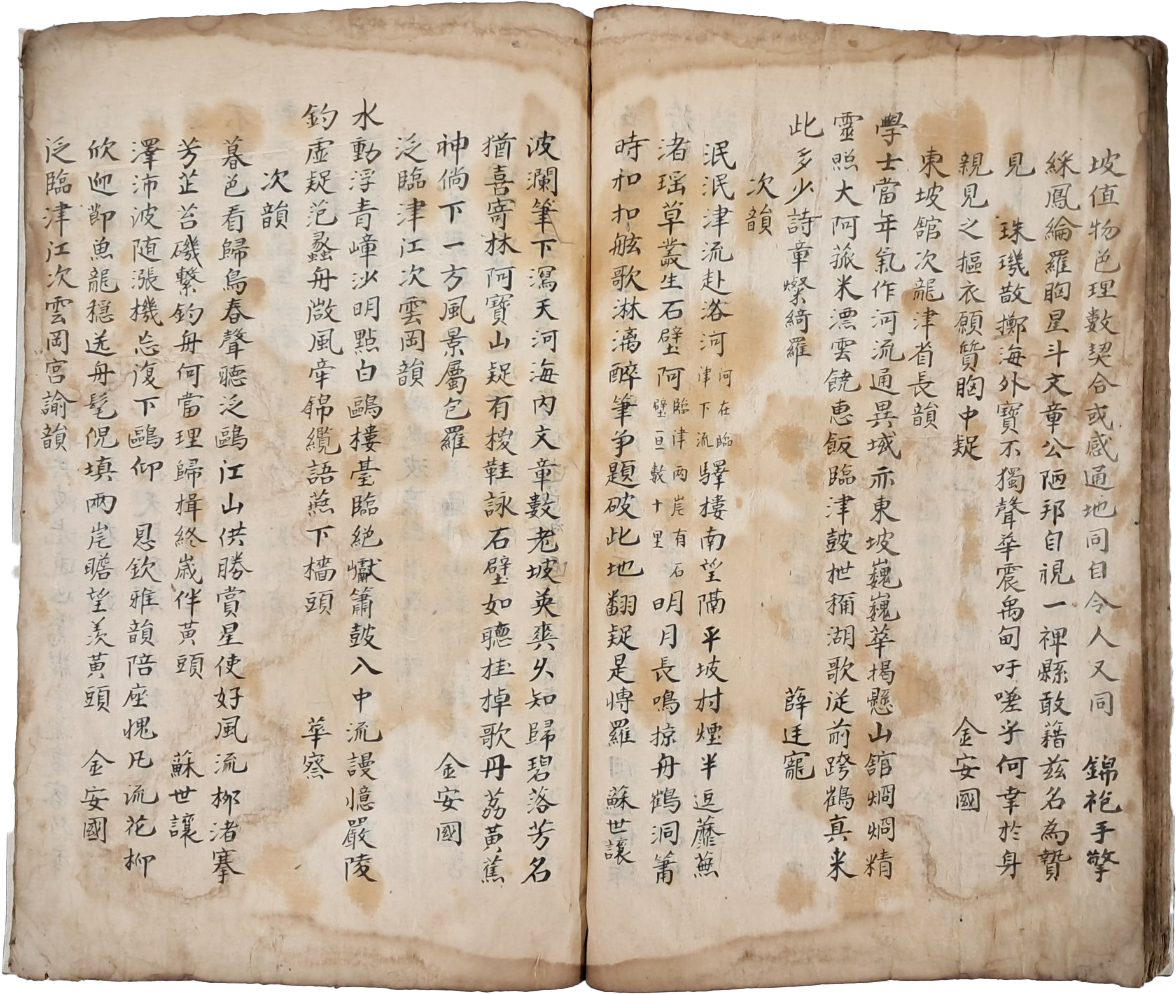 坡值物色理數契合或感通地同目今人又同 錦袍手擎
綵鳳綸羅胸星斗文章公陋邦自視一裨縣敢藉玆名為贄
見 珠璣散擲海外寶不獨聲華震禹甸吁嗟乎何幸於身
親見之摳衣願質胸中疑 金安國
東坡舘次龍津首長韻
學士當年氣作河流通異域亦東坡巍巍華揭懸山舘炯炯精
靈照大阿菰米漂雲饒恵飯臨津鼓枻稱湖歌從前跨鶴真来
此多少詩章燦綺羅 薛廷寵
次韻
泯泯津流赴洛河河在臨津下流驛樓南望隔平坡村煙半逗蘼蕪
渚瑶草叢生石壁阿臨津兩岸有石壁亘數十里明月長鳴掠舟鶴洞簫
時和扣舷歌淋漓醉筆爭題破此地翻疑是愽羅 蘇世讓
波瀾筆下瀉天河海内文章數老坡英爽久知歸碧落芳名
猶喜寄林阿寶山疑有椶鞋詠石壁如聽桂棹歌丹荔黃蕉
神倘下一方風景屬包羅 金安國
泛臨津江次雲岡韻
水動浮青嶂沙明點白鷗樓臺臨絶巘簫鼓入中流謾憶嚴陵
釣虛疑范蠡舟㪣風牽錦纜語燕下檣頭 華察
次韻
暮邑看歸鳥春聲聽泛鷗江山供勝賞星使好風流栁渚搴
芳芷苔磯繫釣舟何當理歸楫終歲伴黃頭 蘇世讓
澤沛波随漲機忘復下鷗仰 恩欽雅韻陪座愧凡流花栁
欣迎節魚龍穩送舟髦倪填兩岸瞻望羨黃頭 金安國
泛臨津江次雲岡宮諭韻